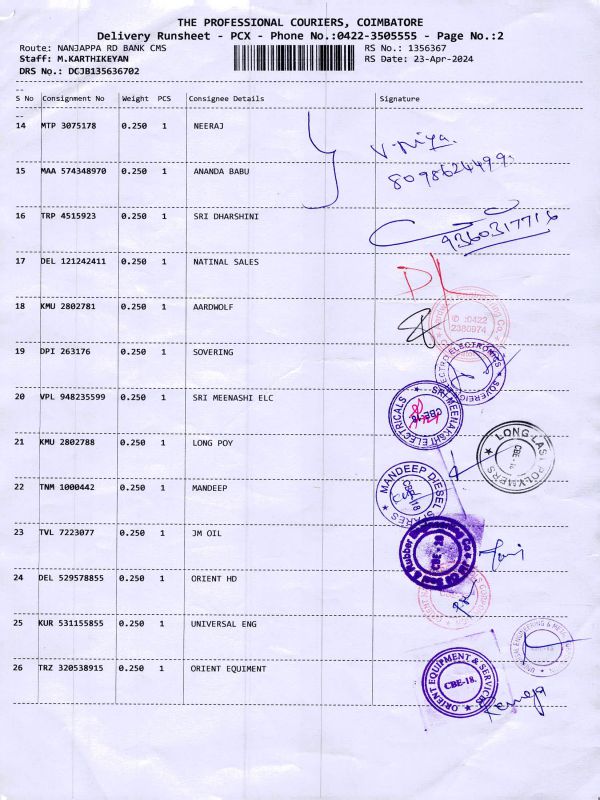 THE PROFESSIONAL COURIERS, COIMBATORE
Delivery Runsheet - PCX - Phone No.:0422-3505555 - Page No.:2
Route: NANJAPPA RD BANK CMS RS No.: 1356367
Staff: M.KARTHIKEYAN RS Date: 23-Apr-2024
DRS No.: DCJB135636702
S No Consignment No Weight PCS Consignee Details Signature
14 MTP 3075178 0.250 1 NEERAJ
V. Priya.
15 MAA 574348970 0.250 1 ANANDA BABU
8098624499.
16 TRP 4515923 0.250 1 SRI DHARSHINI
9360317716
17 DEL 121242411 0.250 1 NATINAL SALES
18 KMU 2802781 0.250 1 AARDWOLF
✆ :0422
2380974
19 DPI 263176 0.250 1 SOVERING
ELECTRONICS
20 VPL 948235599 0.250 1 SRI MEENASHI ELC
SRI MEENAKSHI ELECTRICALS
CBE-18
21 KMU 2802788 0.250 1 LONG POY
LONG LAST POLYMERS
CBE-
22 TNM 1000442 0.250 1 MANDEEP
MANDEEP DIESEL SPARES
CBE-18
23 TVL 7223077 0.250 1 JM OIL
JM Oil Seal & Rubber Engineering Co
24 DEL 529578855 0.250 1 ORIENT HD
25 KUR 531155855 0.250 1 UNIVERSAL ENG
26 TRZ 320538915 0.250 1 ORIENT EQUIMENT
ORIENT EQUIPMENT & SERVICES
CBE-18.